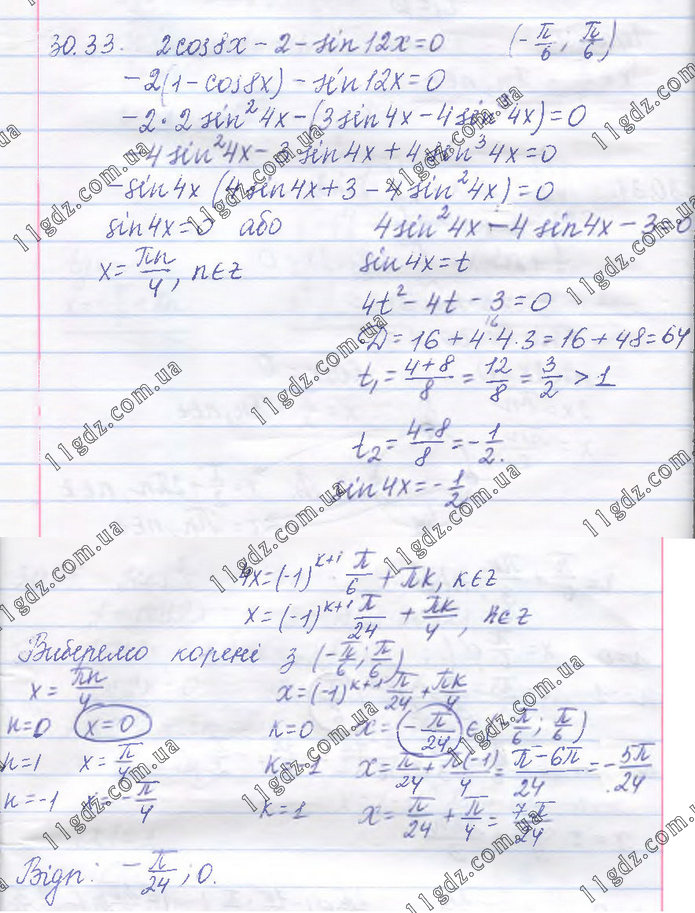 30.33. 2cos8x - 2 - sin12x = 0 (-π/6; π/6)
-2(1 - cos8x) - sin12x = 0
-2·2sin²4x - (3sin4x - 4sin³4x) = 0
-4sin²4x - 3sin4x + 4sin³4x = 0
-sin4x (4sin4x + 3 - 4sin²4x) = 0
sin4x = 0 або 4sin²4x - 4sin4x - 3 = 0
x = πn/4, n∈z sin4x = t
4t² - 4t - 3 = 0
D = 16 + 4·4·3 = 16 + 48 = 64
t₁ = (4+8)/8 = 12/8 = 3/2 > 1
t₂ = (4-8)/8 = -1/2.
sin4x = -1/2
4x = (-1)^(k+1) · π/6 + πk, k∈z
x = (-1)^(k+1) π/24 + πk/4, k∈z
Виберемо корені з (-π/6; π/6)
x = πn/4 x = (-1)^(k+1) π/24 + πk/4
n=0 x=0 k=0 x = -π/24 ∈ (-π/6; π/6)
n=1 x = π/4 k=-1 x = π/24 + π(-1)/4 = (π-6π)/24 = -5π/24
n=-1 x = -π/4 k=1 x = π/24 + π/4 = 7π/24
Відп: -π/24; 0.
11gdz.com.ua